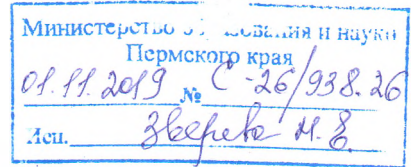 Министерство образования и науки
Пермского края
01.11.2019 № С-26/938.26
Исп. Зверева Н.Е.